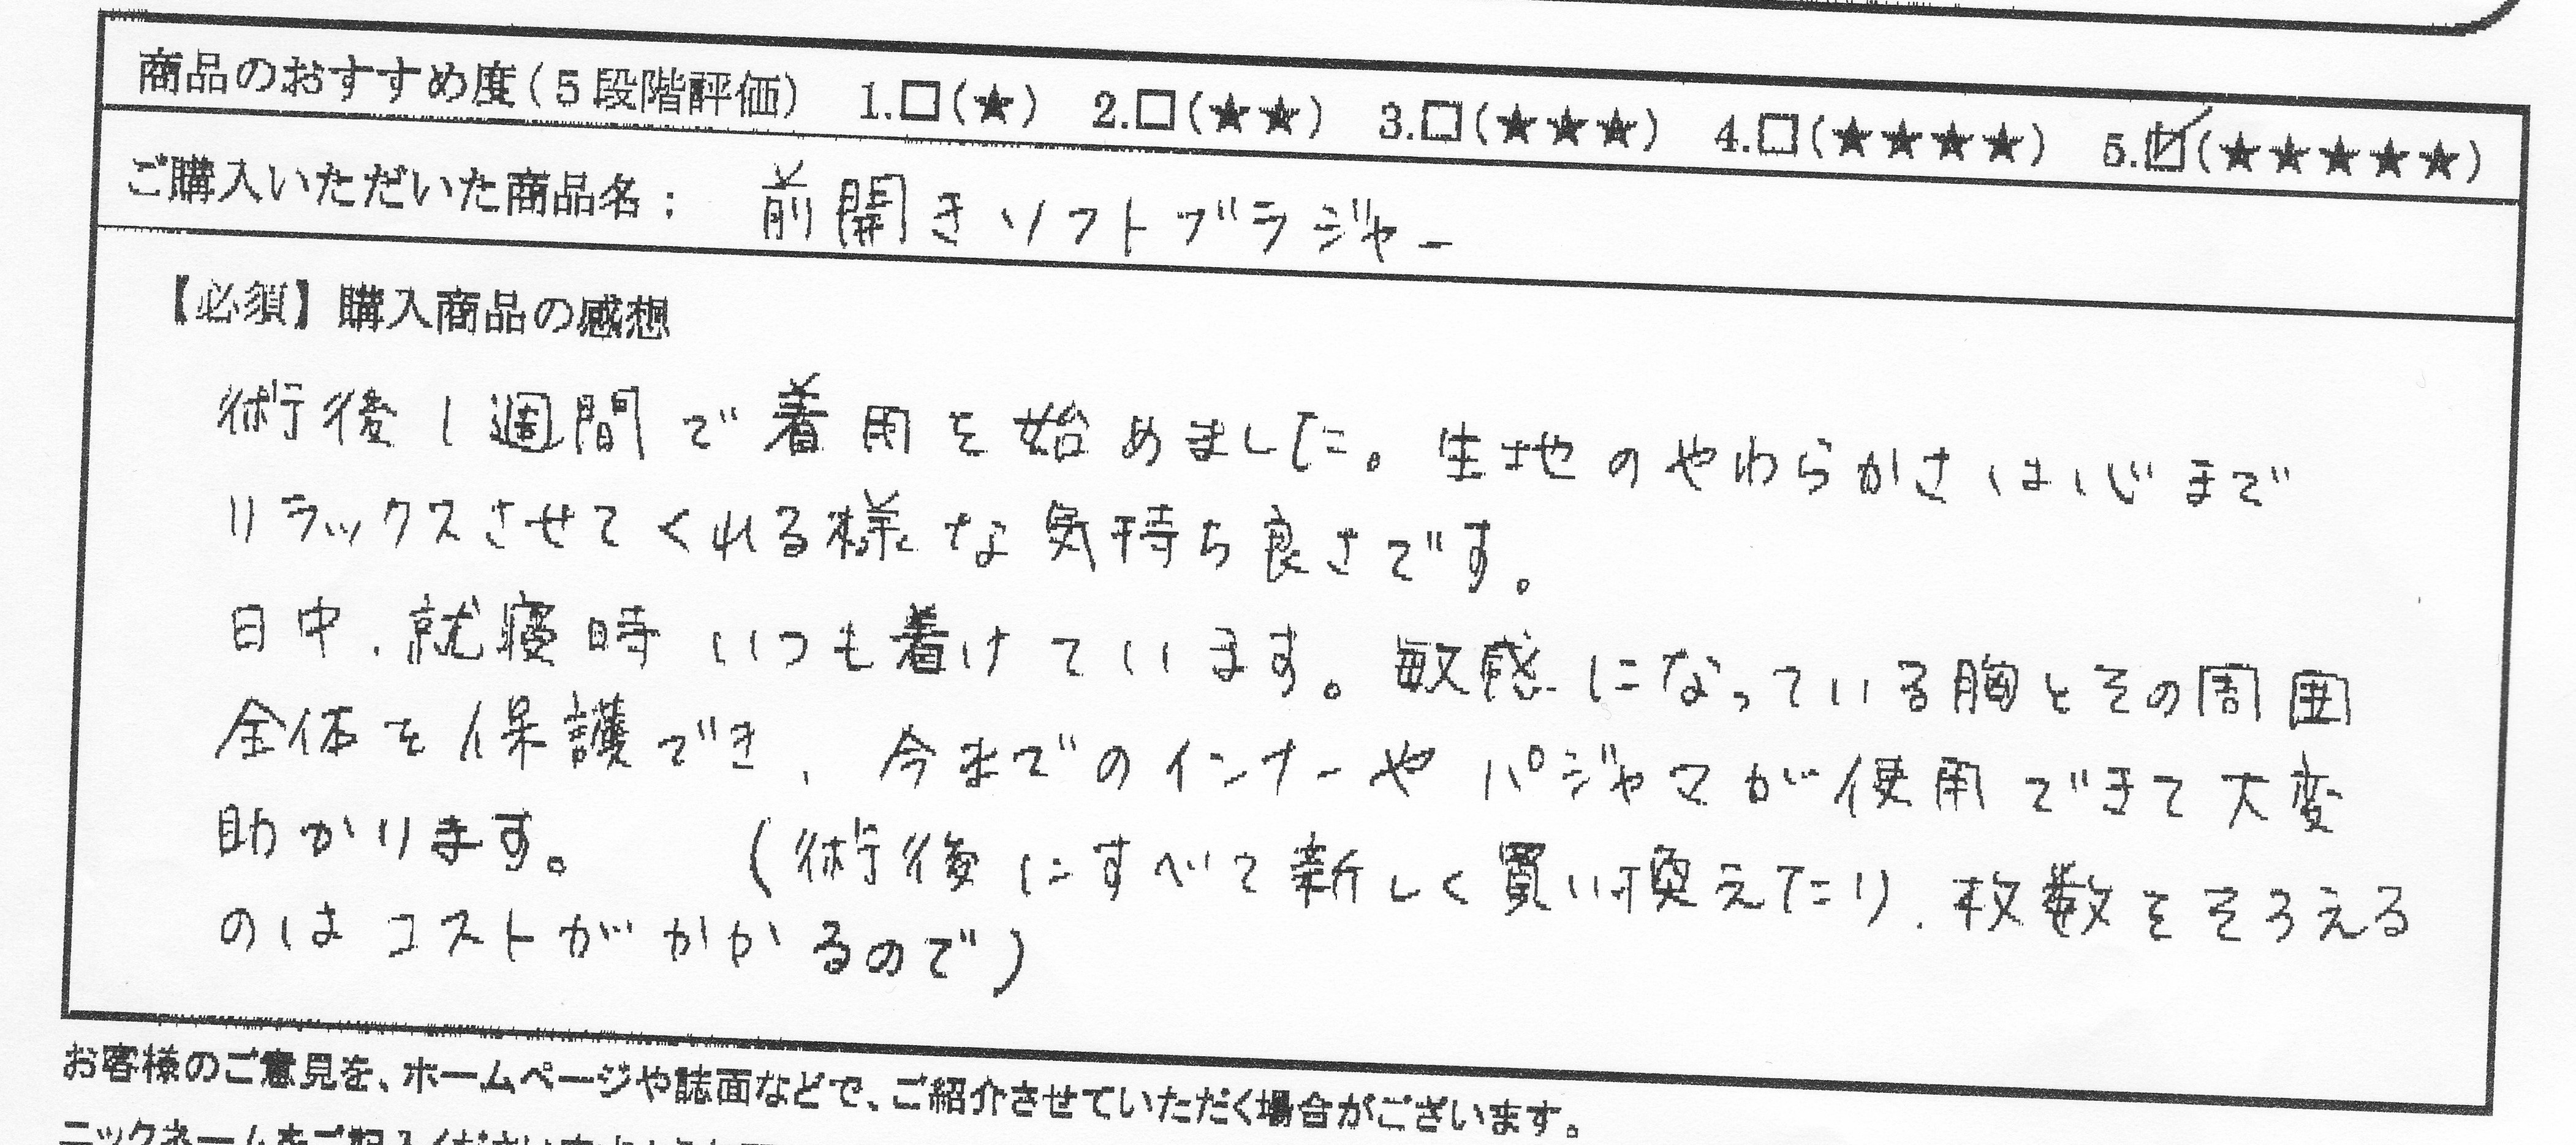 商品のおすすめ度(5段階評価) 1.□(★) 2.□(★★) 3.□(★★★) 4.□(★★★★) 5.☑(★★★★★)
ご購入いただいた商品名: 前開きソフトブラジャー
【必須】購入商品の感想
術後1週間で着用を始めました。生地のやわらかさは心まで
リラックスさせてくれる様な気持ち良さです。
日中、就寝時いつも着けています。敏感になっている胸とその周囲
全体を保護でき、今までのインナーやパジャマが使用できて大変
助かります。 (術後にすべて新しく買い換えたり、枚数をそろえる
のはコストがかかるので)
お客様のご意見を、ホームページや誌面などで、ご紹介させていただく場合がございます。
ニックネームをご記入ください